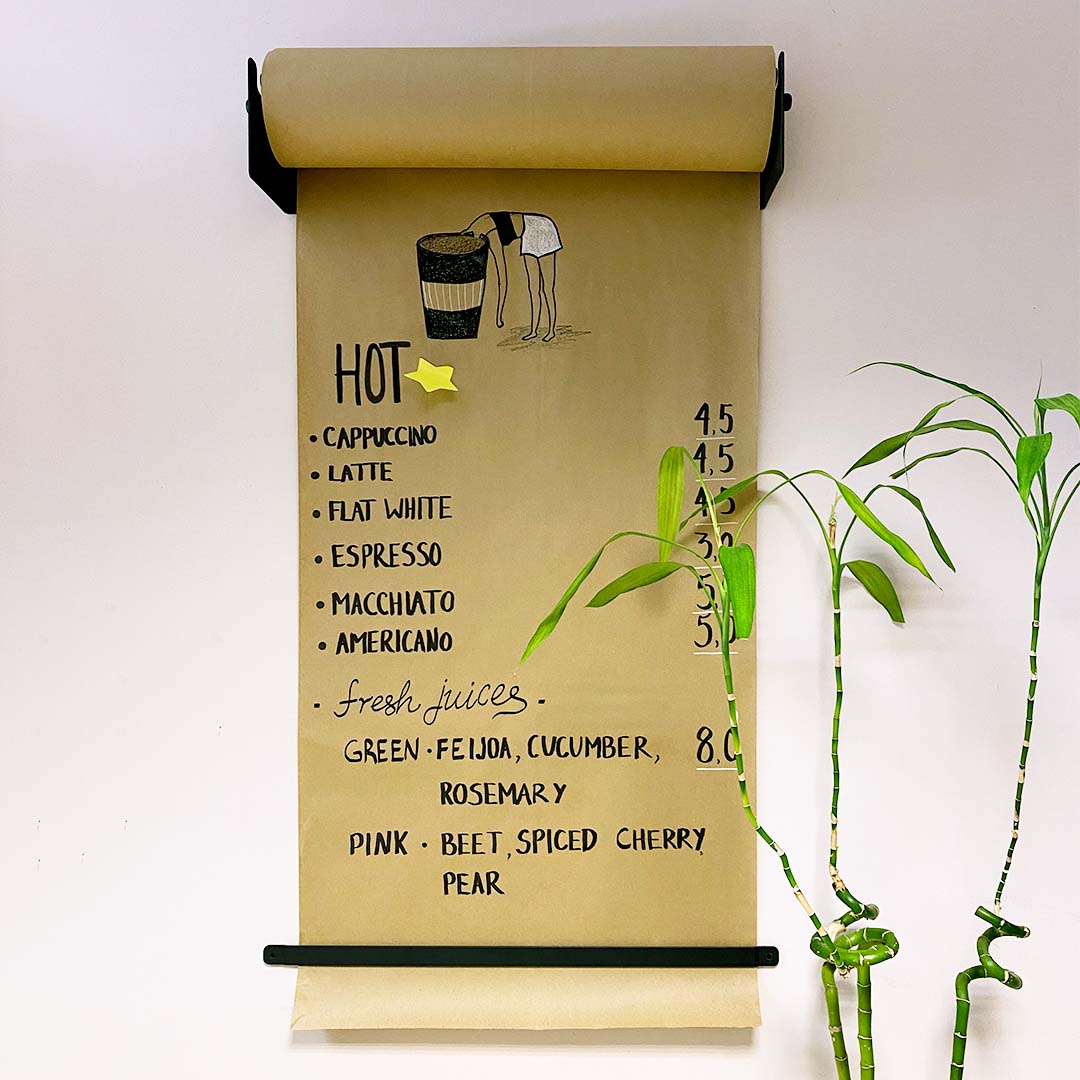 HOT
• CAPPUCCINO 4,5
• LATTE 4,5
• FLAT WHITE 4,5
• ESPRESSO
• MACCHIATO
• AMERICANO 5,0
- fresh juices -
GREEN · FEIJOA, CUCUMBER, 8,0
ROSEMARY
PINK · BEET, SPICED CHERRY,
PEAR